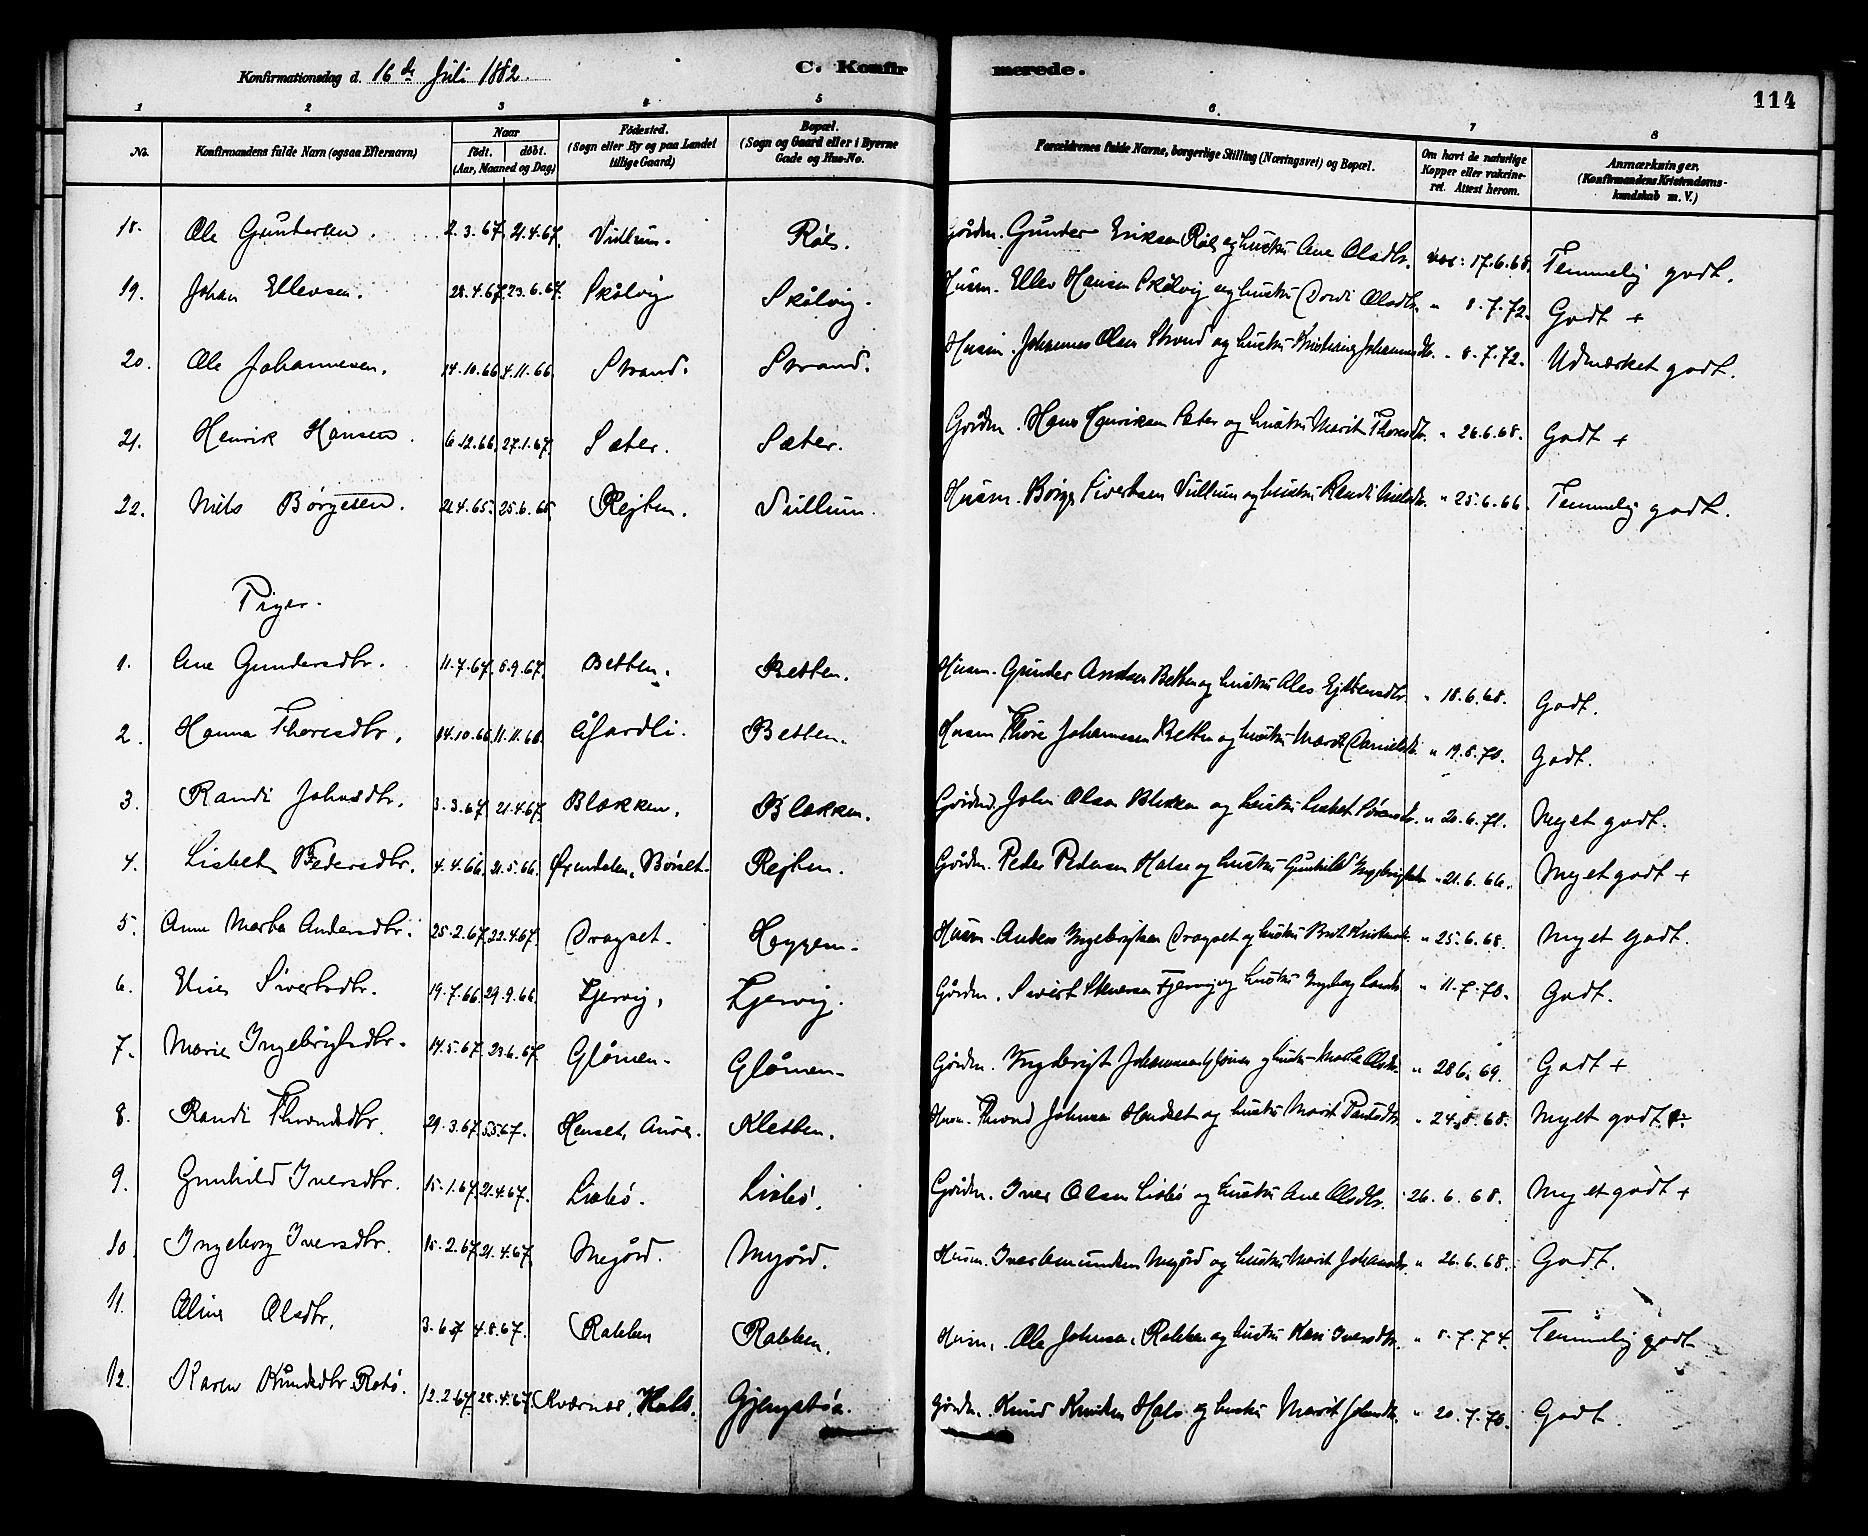 Konfirmationsdag d. 16de Juli 1882. C. Konfirmerede.
114
1 2 3 4 5 6 7 8
No. Konfirmandens fulde Navn (ogsaa Efternavn) Naar født. døbt. (Aar, Maaned og Dag) Fødested. (Sogn eller By og paa Landet tillige Gaard) Bopæl. (Sogn og Gaard eller i Byerne Gade og Hus-No. Forældrenes fulde Navne, borgerlige Stilling (Næringsvei) og Bopæl. Om havt de naturlige Kopper eller vakcineret. Attest herom. Anmærkninger. (Konfirmandens Kristendomskundskab m. V.)
18. Ole Gundersen. 2.3.67. 21.4.67. Vullum. Røls. Gårdm. Gunder Eriksen Røls og hustru Ane Olsdtr. vac: 17.6.68. Temmelig godt.
19. Johan Ellevsen. 28.4.67. 23.6.67. Skålvig Skålvig. Husm. Ellev Hansen Skålvig og hustru Dordi Olsdtr. " 8.7.72. Godt +
20. Ole Johannesen. 14.10.66. 4.11.66. Strand. Strand. Husm. Johannes Olsen Strand og hustru Kristine Johannesdtr. " 8.7.72. Udmærket godt.
21. Henrik Hansen. 6.12.66. 27.1.67. Sæter. Sæter. Gårdm. Hans Henriksen Sæter og hustru Marit Thoresdtr. " 26.6.68. Godt +
22. Nils Børgesen. 21.4.65. 25.6.65. Rejten. Vullum. Husm. Børge Sivertsen Vullum og hustru Randi Nielsdtr. " 25.6.66. Temmelig godt.
Piger.
1. Ane Gundersdtr. 11.7.67. 8.9.67. Betten. Betten. Husm. Gunder Andersen Betten og hustru Ales " 18.6.68. Godt.
2. Hanna Thoresdtr. 14.10.66. 11.11.66. Betten. Husm Thore Johannesen Betten og hustru Marit Danielsdtr. " 19.8.70. Godt.
3. Randi Johnsdtr. 3.3.67. 21.4.67. Blækken. Blækken. Gårdm. John Olsen Blekken og hustru Lisbet " 20.6.71. Meget godt.
4. Lisbet Pedersdtr. 4.4.66. 21.5.66. Øxendalen, Børset. Rejten. Gårdm. Peder Pedersen Halse og hustru Gunhild Ingebrigtsdtr " 21.6.66. Meget godt +
5. Ane Marta Andersdtr. 25.2.67. 22.4.67. Dragset. Heggem. Husm. Anders Ingebrigtsen Dragset og hustru Brit " 25.6.68. Meget godt.
6. Sivertsdtr. 19.7.66. 29.9.66. Fjervig. Fjervig. Gårdm. Sivert Fjervig og hustru Ingeborg " 11.7.70. Godt.
7. Marie Ingebrigtsdtr. 14.5.67. 23.6.67. Glåmen. Glåmen. Gårdm. Ingebrigt Johannesen Glåmen og hustru Marta Olsdtr. " 28.6.69. Godt +
8. Randi Throndsdtr. 29.3.67. 5.5.67. Henset, Aure. Kletten. Husm. Thrond Johnsen Hendset og hustru Marit " 24.8.68. Meget godt.
9. Gunhild Iversdtr. 15.1.67. 21.4.67. Lisbø. Lisbø. Gårdm. Iver Olsen Lisbø og hustru Ane Olsdtr. 26.6.68. Meget godt +
10. Ingeborg Iversdtr. 15.2.67. 21.4.67. Megård. Megård. Husm. Iver Amundsen Megård og hustru Marit " 26.6.68. Godt.
11. Oline Olsdtr. 3.6.67 4.8.67. Rakken Rakken. Husm. Ole Johnsen Rakken og hustru Kari Iversdtr. " 8.7.74. Temmelig godt
12. Karen Knudsdtr. 12.2.67. 28.4.67. Kværnæs, Hals. Gjengstøa. Gårdm. Knud Knudsen Hals og hustru Marit " 20.7.70. Godt.